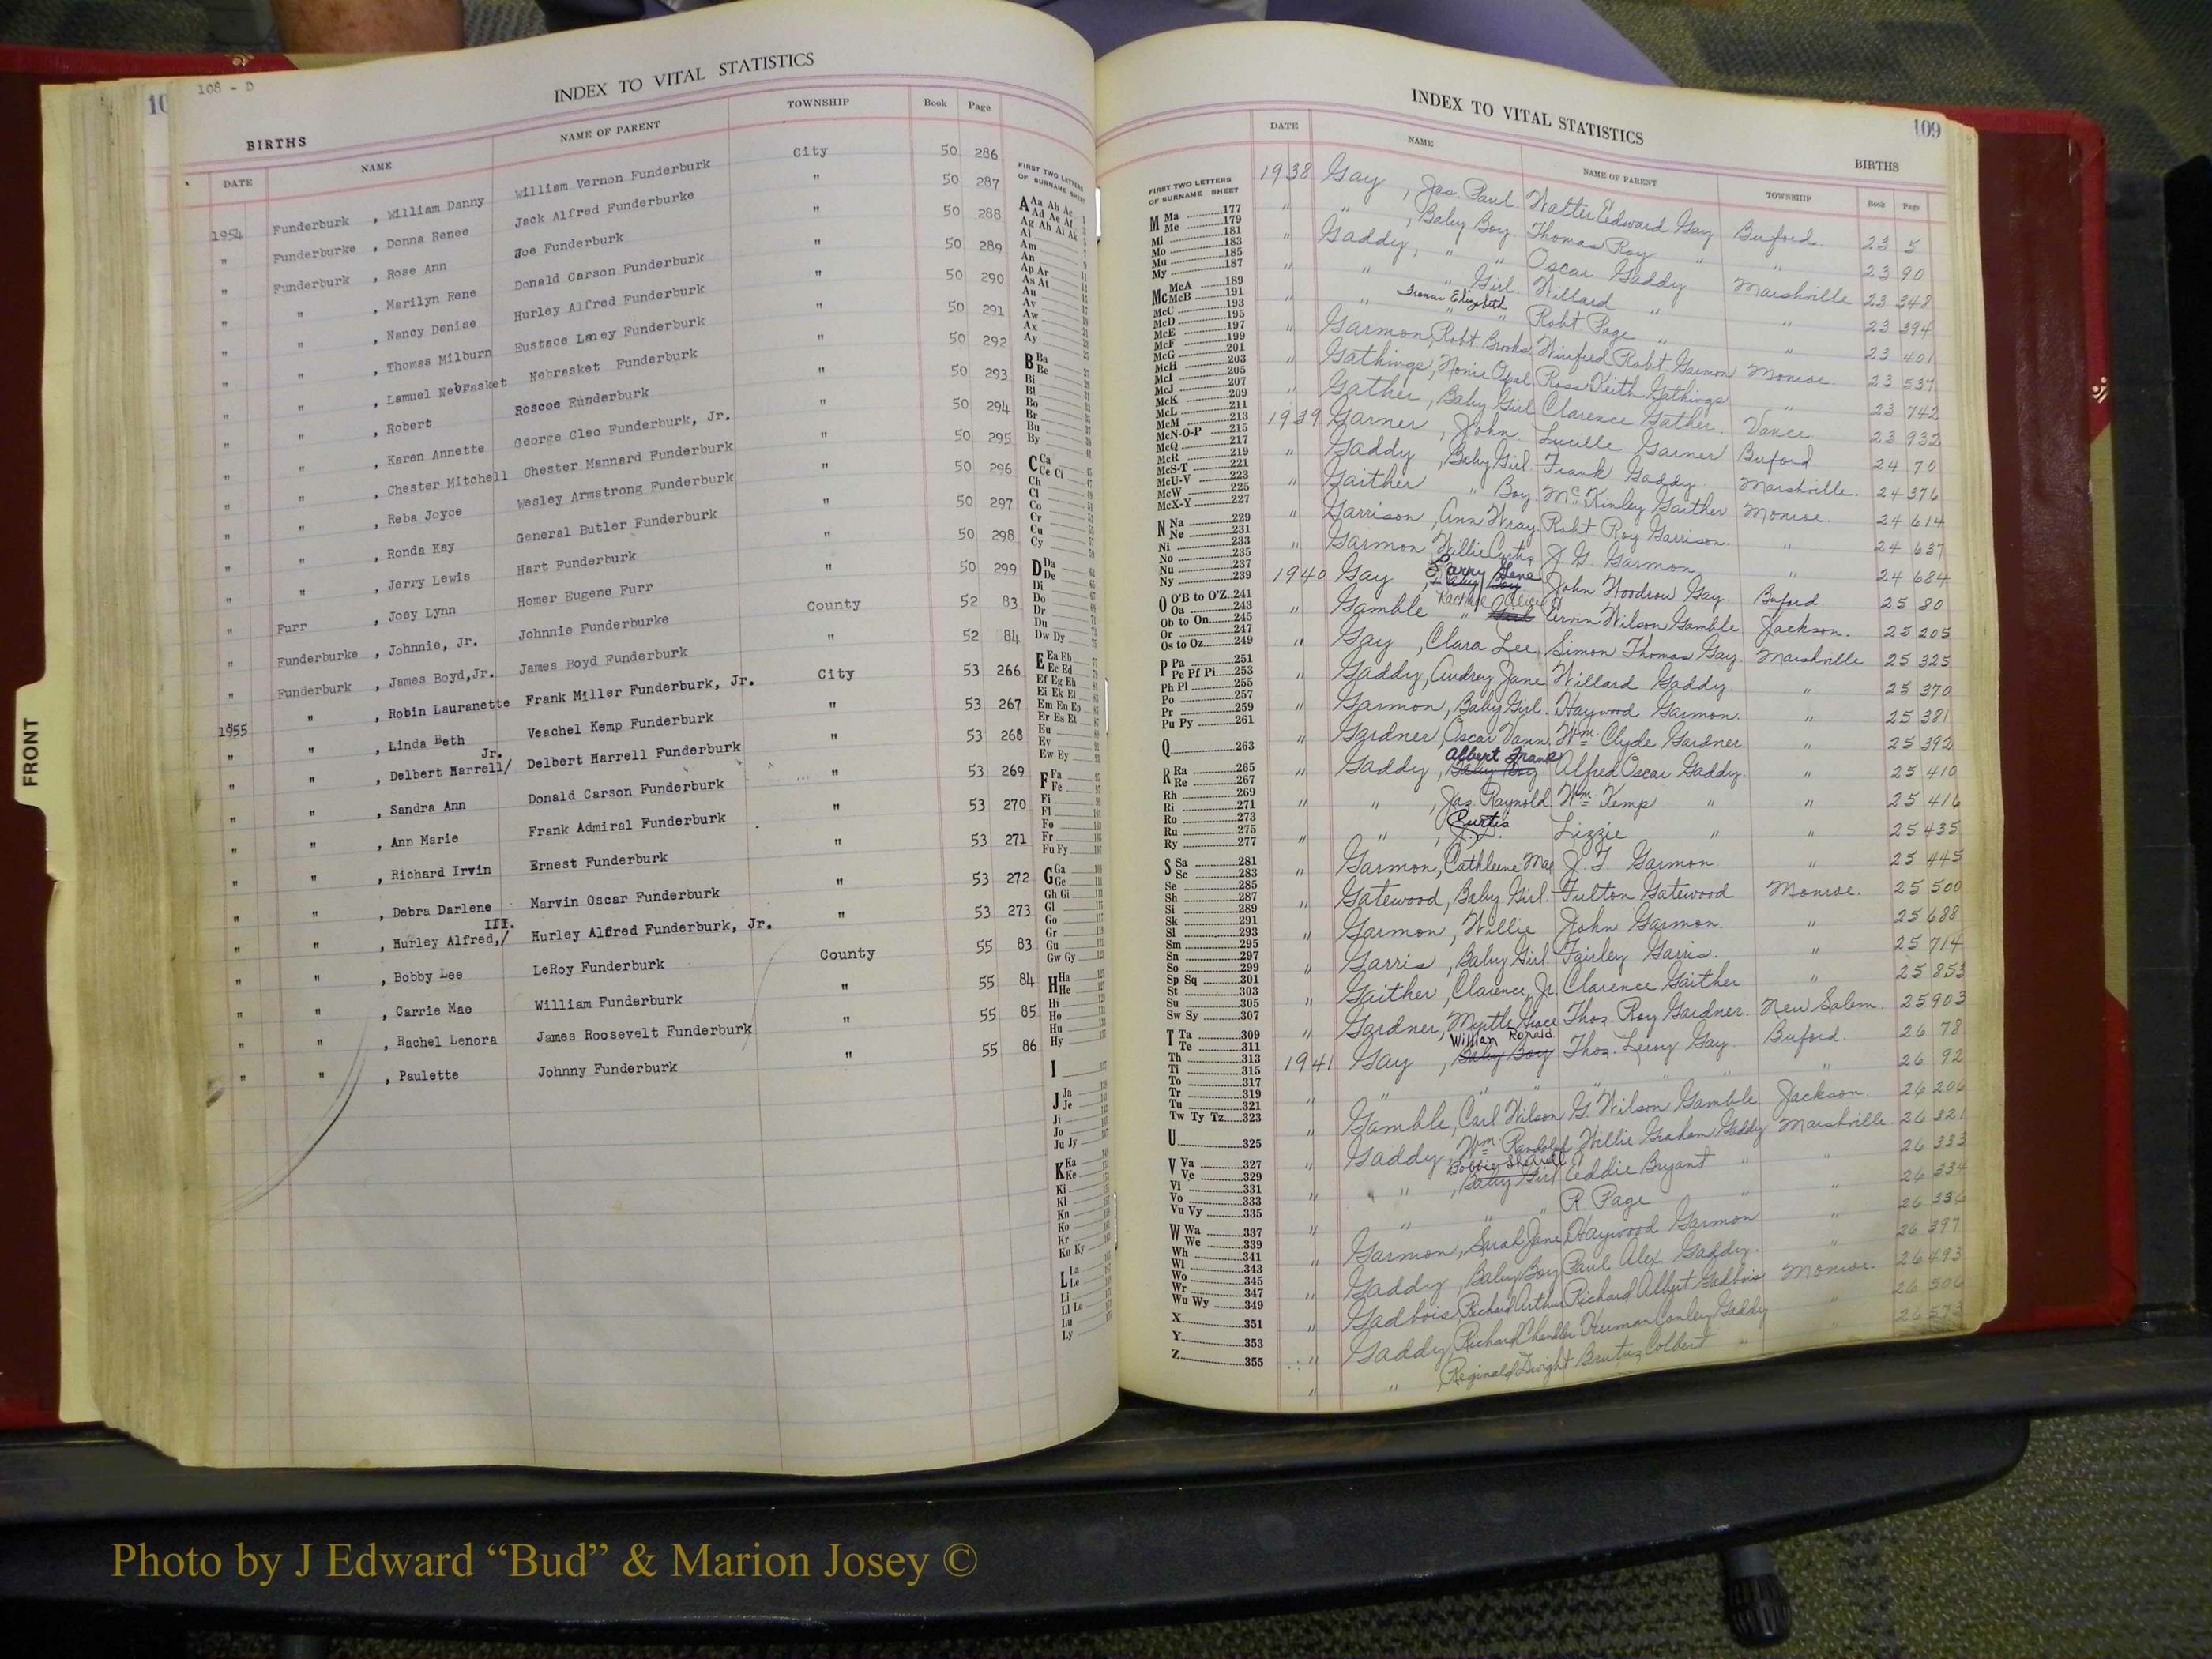 108 - D
INDEX TO VITAL STATISTICS
BIRTHS
DATE NAME NAME OF PARENT TOWNSHIP Book Page
1954 Funderburk , William Danny William Vernon Funderburk City 50 286
" Funderburke , Donna Renee Jack Alfred Funderburke " 50 287
" Funderburk , Rose Ann Joe Funderburk " 50 288
" " , Marilyn Rene Donald Carson Funderburk " 50 289
" " , Nancy Denise Hurley Alfred Funderburk " 50 290
" " , Thomas Milburn Eustace Laney Funderburk " 50 291
" " , Lamuel Nebrasket Nebrasket Funderburk " 50 292
" " , Robert Roscoe Funderburk " 50 293
" " , Karen Annette George Cleo Funderburk, Jr. " 50 294
" " , Chester Mitchell Chester Mennard Funderburk " 50 295
" " , Reba Joyce Wesley Armstrong Funderburk " 50 296
" " , Ronda Kay General Butler Funderburk " 50 297
" " , Jerry Lewis Hart Funderburk " 50 298
" Furr , Joey Lynn Homer Eugene Furr " 50 299
" Funderburke , Johnnie, Jr. Johnnie Funderburke County 52 83
" Funderburk , James Boyd, Jr. James Boyd Funderburk " 52 84
1955 " , Robin Lauranette Frank Miller Funderburk, Jr. City 53 266
" " , Linda Beth Veachel Kemp Funderburk " 53 267
" " , Delbert Harrell/ Jr. Delbert Harrell Funderburk " 53 268
" " , Sandra Ann Donald Carson Funderburk " 53 269
" " , Ann Marie Frank Admiral Funderburk " 53 270
" " , Richard Irvin Ernest Funderburk " 53 271
" " , Debra Darlene Marvin Oscar Funderburk " 53 272
" " , Hurley Alfred,/ III. Hurley Alfred Funderburk, Jr. " 53 273
" " , Bobby Lee LeRoy Funderburk County 55 83
" " , Carrie Mae William Funderburk " 55 84
" " , Rachel Lenora James Roosevelt Funderburk " 55 85
" " , Paulette Johnny Funderburk " 55 86
FRONT
FIRST TWO LETTERS
OF SURNAME SHEET
A Aa Ab Ac
Ad Ae Af
Ag Ah Ai Ak
Al
Am
An
Ap Ar
As At
Au
Av
Aw
Ax
Ay
B Ba
Be
Bi
Bl
Bo
Br
Bu
By
C Ca
Ce Ci
Ch
Cl
Co
Cr
Cu
Cy
D Da
De
Di
Do
Dr
Du
Dw Dy
E Ea Eb
Ec Ed
Ef Eg Eh
Ei Ek El
Em En Ep
Er Es Et
Eu
Ev
Ew Ey
F Fa
Fe
Fi
Fl
Fo
Fr
Fu Fy
G Ga
Ge
Gh Gi
Gl
Go
Gr
Gu
Gw Gy
H Ha
He
Hi
Ho
Hu
Hy
I
J Ja
Je
Ji
Jo
Ju Jy
K Ka
Ke
Ki
Kl
Kn
Ko
Kr
Ku Ky
L La
Le
Li
Ll Lo
Lu
Ly
INDEX TO VITAL STATISTICS
109
BIRTHS
FIRST TWO LETTERS
OF SURNAME SHEET
M Ma 177
Me 179
Mi 181
Mo 183
Mu 185
My 187
Mc McA 189
McB 191
McC 193
McD 195
McE 197
McF 199
McG 201
McH 203
McI 205
McJ 207
McK 209
McL 211
McM 213
McN-O-P 215
McQ 217
McR 219
McS-T 221
McU-V 223
McW 225
McX-Y 227
N Na 229
Ne 231
Ni 233
No 235
Nu 237
Ny 239
O O'B to O'Z 241
Oa 243
Ob to On 245
Or 247
Os to Oz 249
P Pa 251
Pe Pf Pi 253
Ph Pl 255
Po 257
Pr 259
Pu Py 261
Q 263
R Ra 265
Re 267
Rh 269
Ri 271
Ro 273
Ru 275
Ry 277
S Sa 281
Sc 283
Se 285
Sh 287
Si 289
Sk 291
Sl 293
Sm 295
Sn 297
So 299
Sp Sq 301
St 303
Su 305
Sw Sy 307
T Ta 309
Te 311
Th 313
Ti 315
To 317
Tr 319
Tu 321
Tw Ty Tz 323
U 325
V Va 327
Ve 329
Vi 331
Vo 333
Vu Vy 335
W Wa 337
We 339
Wh 341
Wi 343
Wo 345
Wr 347
Wu Wy 349
X 351
Y 353
Z 355
DATE NAME NAME OF PARENT TOWNSHIP Book Page
1938 Gay , Jas. Paul Walter Edward Gay Buford 23 5
" " , Baby Boy Thomas Roy " " 23 90
" Gaddy, " " Oscar Gaddy Marshville 23 348
" " " Girl Willard " " 23 394
" " Elizabeth Robt Page " " 23 401
" Garmon, Robt. Brooks Winfred Robt. Garmon Monroe 23 537
" Gathings, Nonie Opal Ross Keith Gathings " 23 742
" Gather, Baby Girl Clarence Gather Vance 23 932
1939 Garner , John Lucille Garner Buford 24 70
" Gaddy , Baby Girl Frank Gaddy Marshville 24 376
" Gaither " Boy McKinley Gaither Monroe 24 614
" Garrison, Ann Wray Robt Roy Garrison " 24 637
" Garmon Willie Curtis J. G. Garmon " 24 684
1940 Gay , Larry Gene Baby Boy John Woodrow Gay Buford 25 80
" Gamble " Alice Girl Ervin Wilson Gamble Jackson 25 205
" Gay , Clara Lee Simon Thomas Gay Marshville 25 325
" Gaddy, Audrey Jane Willard Gaddy " 25 370
" Garmon, Baby Girl Haywood Garmon " 25 381
" Gardner, Oscar Vann Wm. Clyde Gardner " 25 392
" Gaddy, Albert Frank Baby Boy Alfred Oscar Gaddy " 25 410
" " , Jas. Raynold Wm. Kemp " " 25 416
" " , Curtis Lizzie " " 25 435
" Garmon, Cathleene Mae J. F. Garmon " 25 445
" Gatewood, Baby Girl Fulton Gatewood Monroe 25 500
" Garmon, Willie John Garmon " 25 688
" Garris, Baby Girl Fairley Garris " 25 714
" Gaither, Clarence, Jr. Clarence Gaither " 25 853
" Gardner, Myrtle Grace Thos. Roy Gardner New Salem 25 903
1941 Gay , William Ronald Baby Boy Thos. Leroy Gay Buford 26 78
" " " " " " " 26 92
" Gamble, Carl Wilson G. Wilson Gamble Jackson 26 206
" Gaddy, Wm. Randolph Willie Graham Gaddy Marshville 26 321
" " , Bobbie Baby Girl Eddie Bryant " " 26 333
" " " " R. Page " " 26 334
" Garmon, Sarah Jane Haywood Garmon " 26 336
" Gaddy, Baby Boy Paul Alex. Gaddy " 26 397
" Gadbois, Richard Arthur Richard Albert Gadbois Monroe 26 493
" Gaddy, Richard Chandler Conley Gaddy " 26 506
" " Reginald Dwight Brutus Colbert " " 26
Photo by J Edward “Bud” & Marion Josey ©